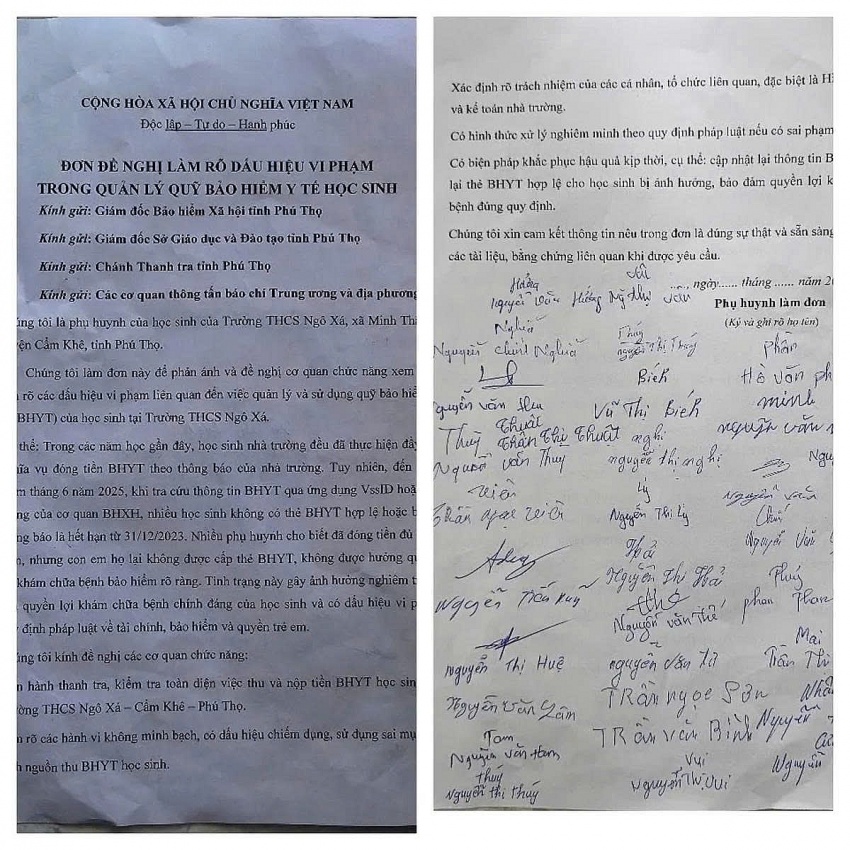 CỘNG HÒA XÃ HỘI CHỦ NGHĨA VIỆT NAM
Độc lập – Tự do – Hạnh phúc
ĐƠN ĐỀ NGHỊ LÀM RÕ DẤU HIỆU VI PHẠM
TRONG QUẢN LÝ QUỸ BẢO HIỂM Y TẾ HỌC SINH
Kính gửi: Giám đốc Bảo hiểm Xã hội tỉnh Phú Thọ
Kính gửi: Giám đốc Sở Giáo dục và Đào tạo tỉnh Phú Thọ
Kính gửi: Chánh Thanh tra tỉnh Phú Thọ
Kính gửi: Các cơ quan thông tấn báo chí Trung ương và địa phương
úng tôi là phụ huynh của học sinh của Trường THCS Ngô Xá, xã Minh
yện Cẩm Khê, tỉnh Phú Thọ.
Chúng tôi làm đơn này để phản ánh và đề nghị cơ quan chức năng xem
rõ các dấu hiệu vi phạm liên quan đến việc quản lý và sử dụng quỹ bảo hiể
(BHYT) của học sinh tại Trường THCS Ngô Xá.
thể: Trong các năm học gần đây, học sinh nhà trường đều đã thực hiện đầy
hĩa vụ đóng tiền BHYT theo thông báo của nhà trường. Tuy nhiên, đến
m tháng 6 năm 2025, khi tra cứu thông tin BHYT qua ứng dụng VssID hoặ
ng của cơ quan BHXH, nhiều học sinh không có thẻ BHYT hợp lệ hoặc b
ng báo là hết hạn từ 31/12/2023. Nhiều phụ huynh cho biết đã đóng tiền đủ
, nhưng con em họ lại không được cấp thẻ BHYT, không được hưởng qu
khám chữa bệnh bảo hiểm rõ ràng. Tình trạng này gây ảnh hưởng nghiêm t
quyền lợi khám chữa bệnh chính đáng của học sinh và có dấu hiệu vi p
định pháp luật về tài chính, bảo hiểm và quyền trẻ em.
úng tôi kính đề nghị các cơ quan chức năng:
n hành thanh tra, kiểm tra toàn diện việc thu và nộp tiền BHYT học sin
ường THCS Ngô Xá – Cẩm Khê – Phú Thọ.
m rõ các hành vi không minh bạch, có dấu hiệu chiếm dụng, sử dụng sai mụ
h nguồn thu BHYT học sinh.
Xác định rõ trách nhiệm của các cá nhân, tổ chức liên quan, đặc biệt là Hi
và kế toán nhà trường.
Có hình thức xử lý nghiêm minh theo quy định pháp luật nếu có sai phạm
Có biện pháp khắc phục hậu quả kịp thời, cụ thể: cập nhật lại thông tin B
lại thẻ BHYT hợp lệ cho học sinh bị ảnh hưởng, bảo đảm quyền lợi k
bệnh đúng quy định.
Chúng tôi xin cam kết thông tin nêu trong đơn là đúng sự thật và sẵn sàng
các tài liệu, bằng chứng liên quan khi được yêu cầu.
......, ngày...... tháng ...... năm 2
Phụ huynh làm đơn
(Ký và ghi rõ họ tên)
Nghĩa
Thúy
Phấn
Nguyễn Chính Nghĩa
nguyễn Thị Thúy
Hồ văn ph
Bích
Vũ Thị Bích
minh
nguyễn văn
Thuật
Trần Thị Thuật
nghị
nguyễn thị nghị
Nguyễn văn Thuỳ
viên
Lý
Nguyễn Thị Lý
Trần ngọc viên
Hải
Nguyễn Thị Hải
Nguyễn Tiến
Nguyễn văn Thế
phan
Mai
nguyễn Thị Huệ
nguyễn văn
Trần Thị
Nguyễn Văn Lâm
TRẦN ngọc Sơn
TRẦN văn Bình
Nguyễn
Tam
Nguyễn văn Tam
Vui
Nguyễn Thị Vui
Nguyễn
thúy
Nguyễn thị thúy